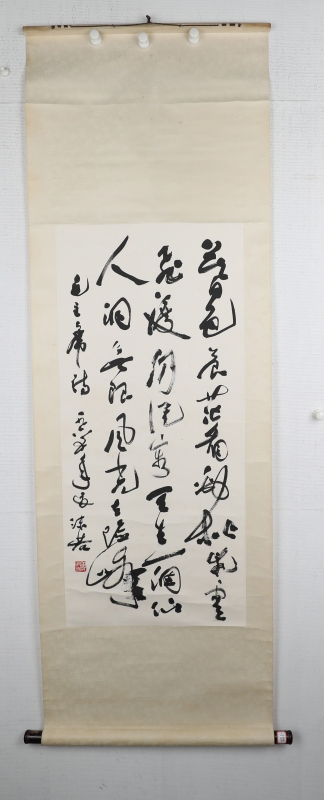 暮色苍茫看劲松乱云
飞渡仍从容天生一个仙
人洞无限风光在险峰
毛主席诗
沫若